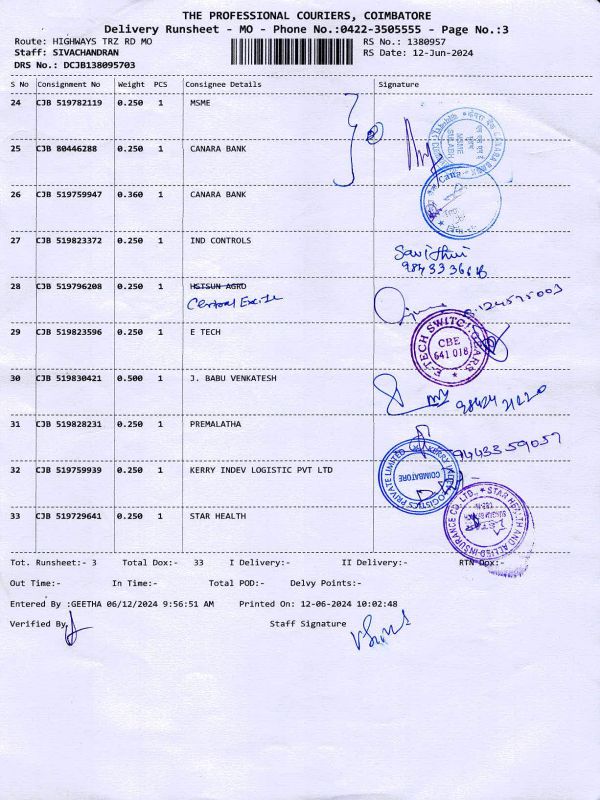 THE PROFESSIONAL COURIERS, COIMBATORE
Delivery Runsheet - MO - Phone No.:0422-3505555 - Page No.:3
Route: HIGHWAYS TRZ RD MO RS No.: 1380957
Staff: SIVACHANDRAN RS Date: 12-Jun-2024
DRS No.: DCJB138095703
S No Consignment No Weight PCS Consignee Details Signature
24 CJB 519782119 0.250 1 MSME
25 CJB 80446288 0.250 1 CANARA BANK
26 CJB 519759947 0.360 1 CANARA BANK
27 CJB 519823372 0.250 1 IND CONTROLS
28 CJB 519796208 0.250 1 HSTSUN AGRO
Central Excise
29 CJB 519823596 0.250 1 E TECH
E-TECH SWITCHGEARS
CBE
641 018
30 CJB 519830421 0.500 1 J. BABU VENKATESH
31 CJB 519828231 0.250 1 PREMALATHA
9443359057
32 CJB 519759939 0.250 1 KERRY INDEV LOGISTIC PVT LTD
COIMBATORE
33 CJB 519729641 0.250 1 STAR HEALTH
STAR HEALTH AND ALLIED INSURANCE CO. LTD.
Tot. Runsheet:- 3 Total Dox:- 33 I Delivery:- II Delivery:- RTN Dox:-
Out Time:- In Time:- Total POD:- Delvy Points:-
Entered By :GEETHA 06/12/2024 9:56:51 AM Printed On: 12-06-2024 10:02:48
Verified By Staff Signature